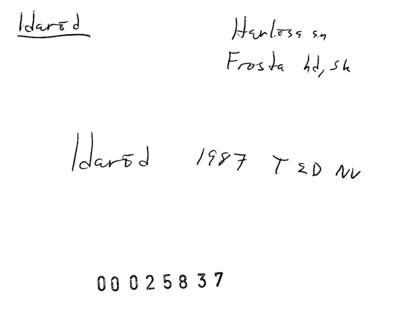 Idarōd
Harlösa sn
Frosta hd, sk
Idarōd 1987 T ED NV
00025837